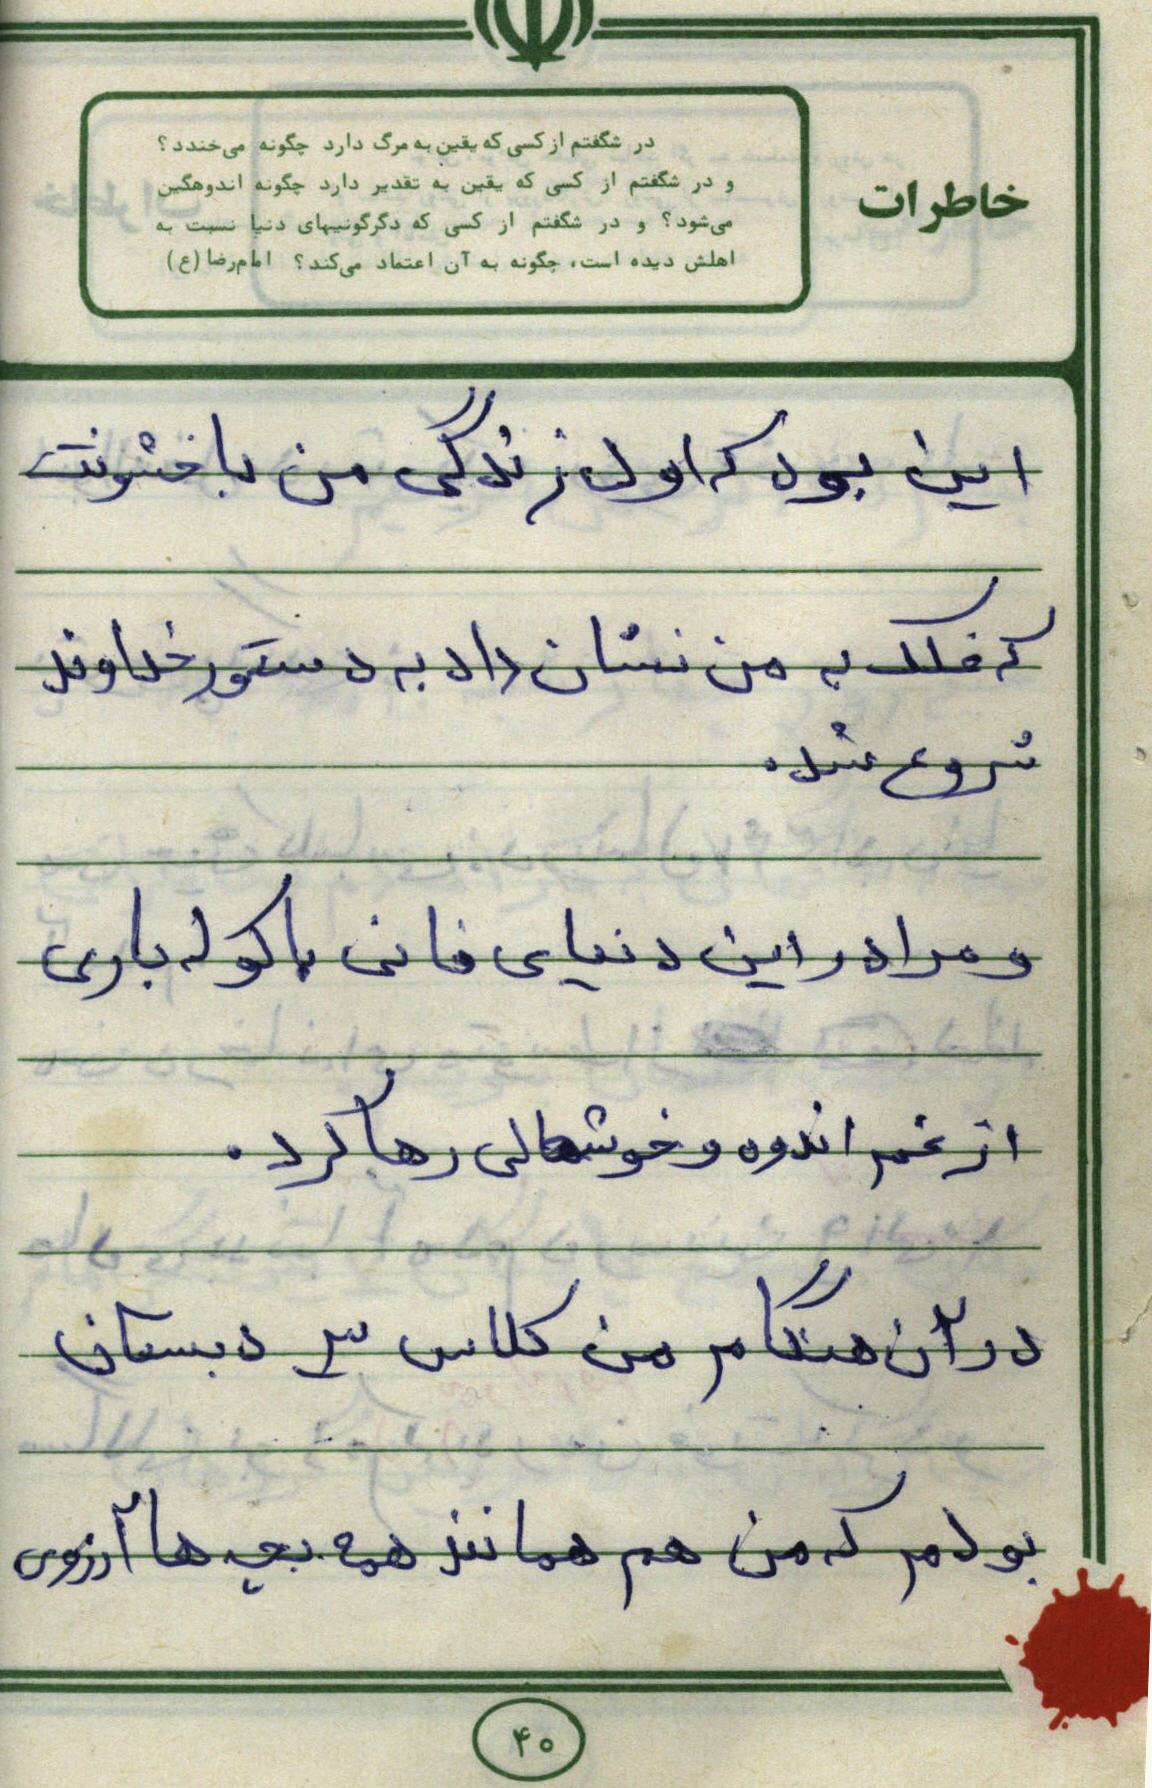 خاطرات
در شگفتم از کسی که یقین به مرگ دارد چگونه می‌خندد؟
و در شگفتم از کسی که یقین به تقدیر دارد چگونه اندوهگین
می‌شود؟ و در شگفتم از کسی که دگرگونیهای دنیا نسبت به
اهلش دیده است، چگونه به آن اعتماد می‌کند؟ امام‌رضا (ع)
این بود که اول زندگی من با خشونت
که فلک به من نشان داد به دستور خداوند
شروع شده
و مرا در این دنیای فانی با کوله باری
از غم اندوه و خوشحالی رها کرد .
در آن هنگام من کلاس ۳ دبستان
بودم که من هم همانند همه بچه ها آرزوی
۴۰